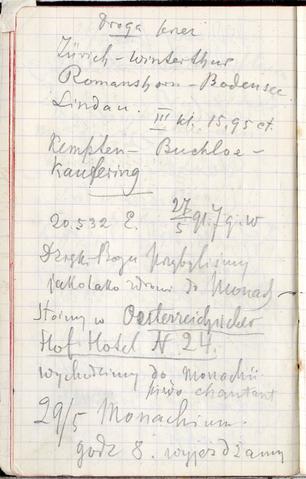 Droga przez
Zürich - Winterthur
Romanshorn - Bodensee
Lindau.
III kl. 15,95 ct.
Kempten - Buchloe -
Kaufering
20.532 E. 27/5 91. 7 g. w
Dzięk. Bogu przybyliśmy
jakotako zdrowi do Monach -
Stoimy w Oesterreichischer
Hof Hotel N 24.
Wychodzimy do Monachii
piwo chantant
29/5 Monachium.
godz 8. wyjeżdżamy